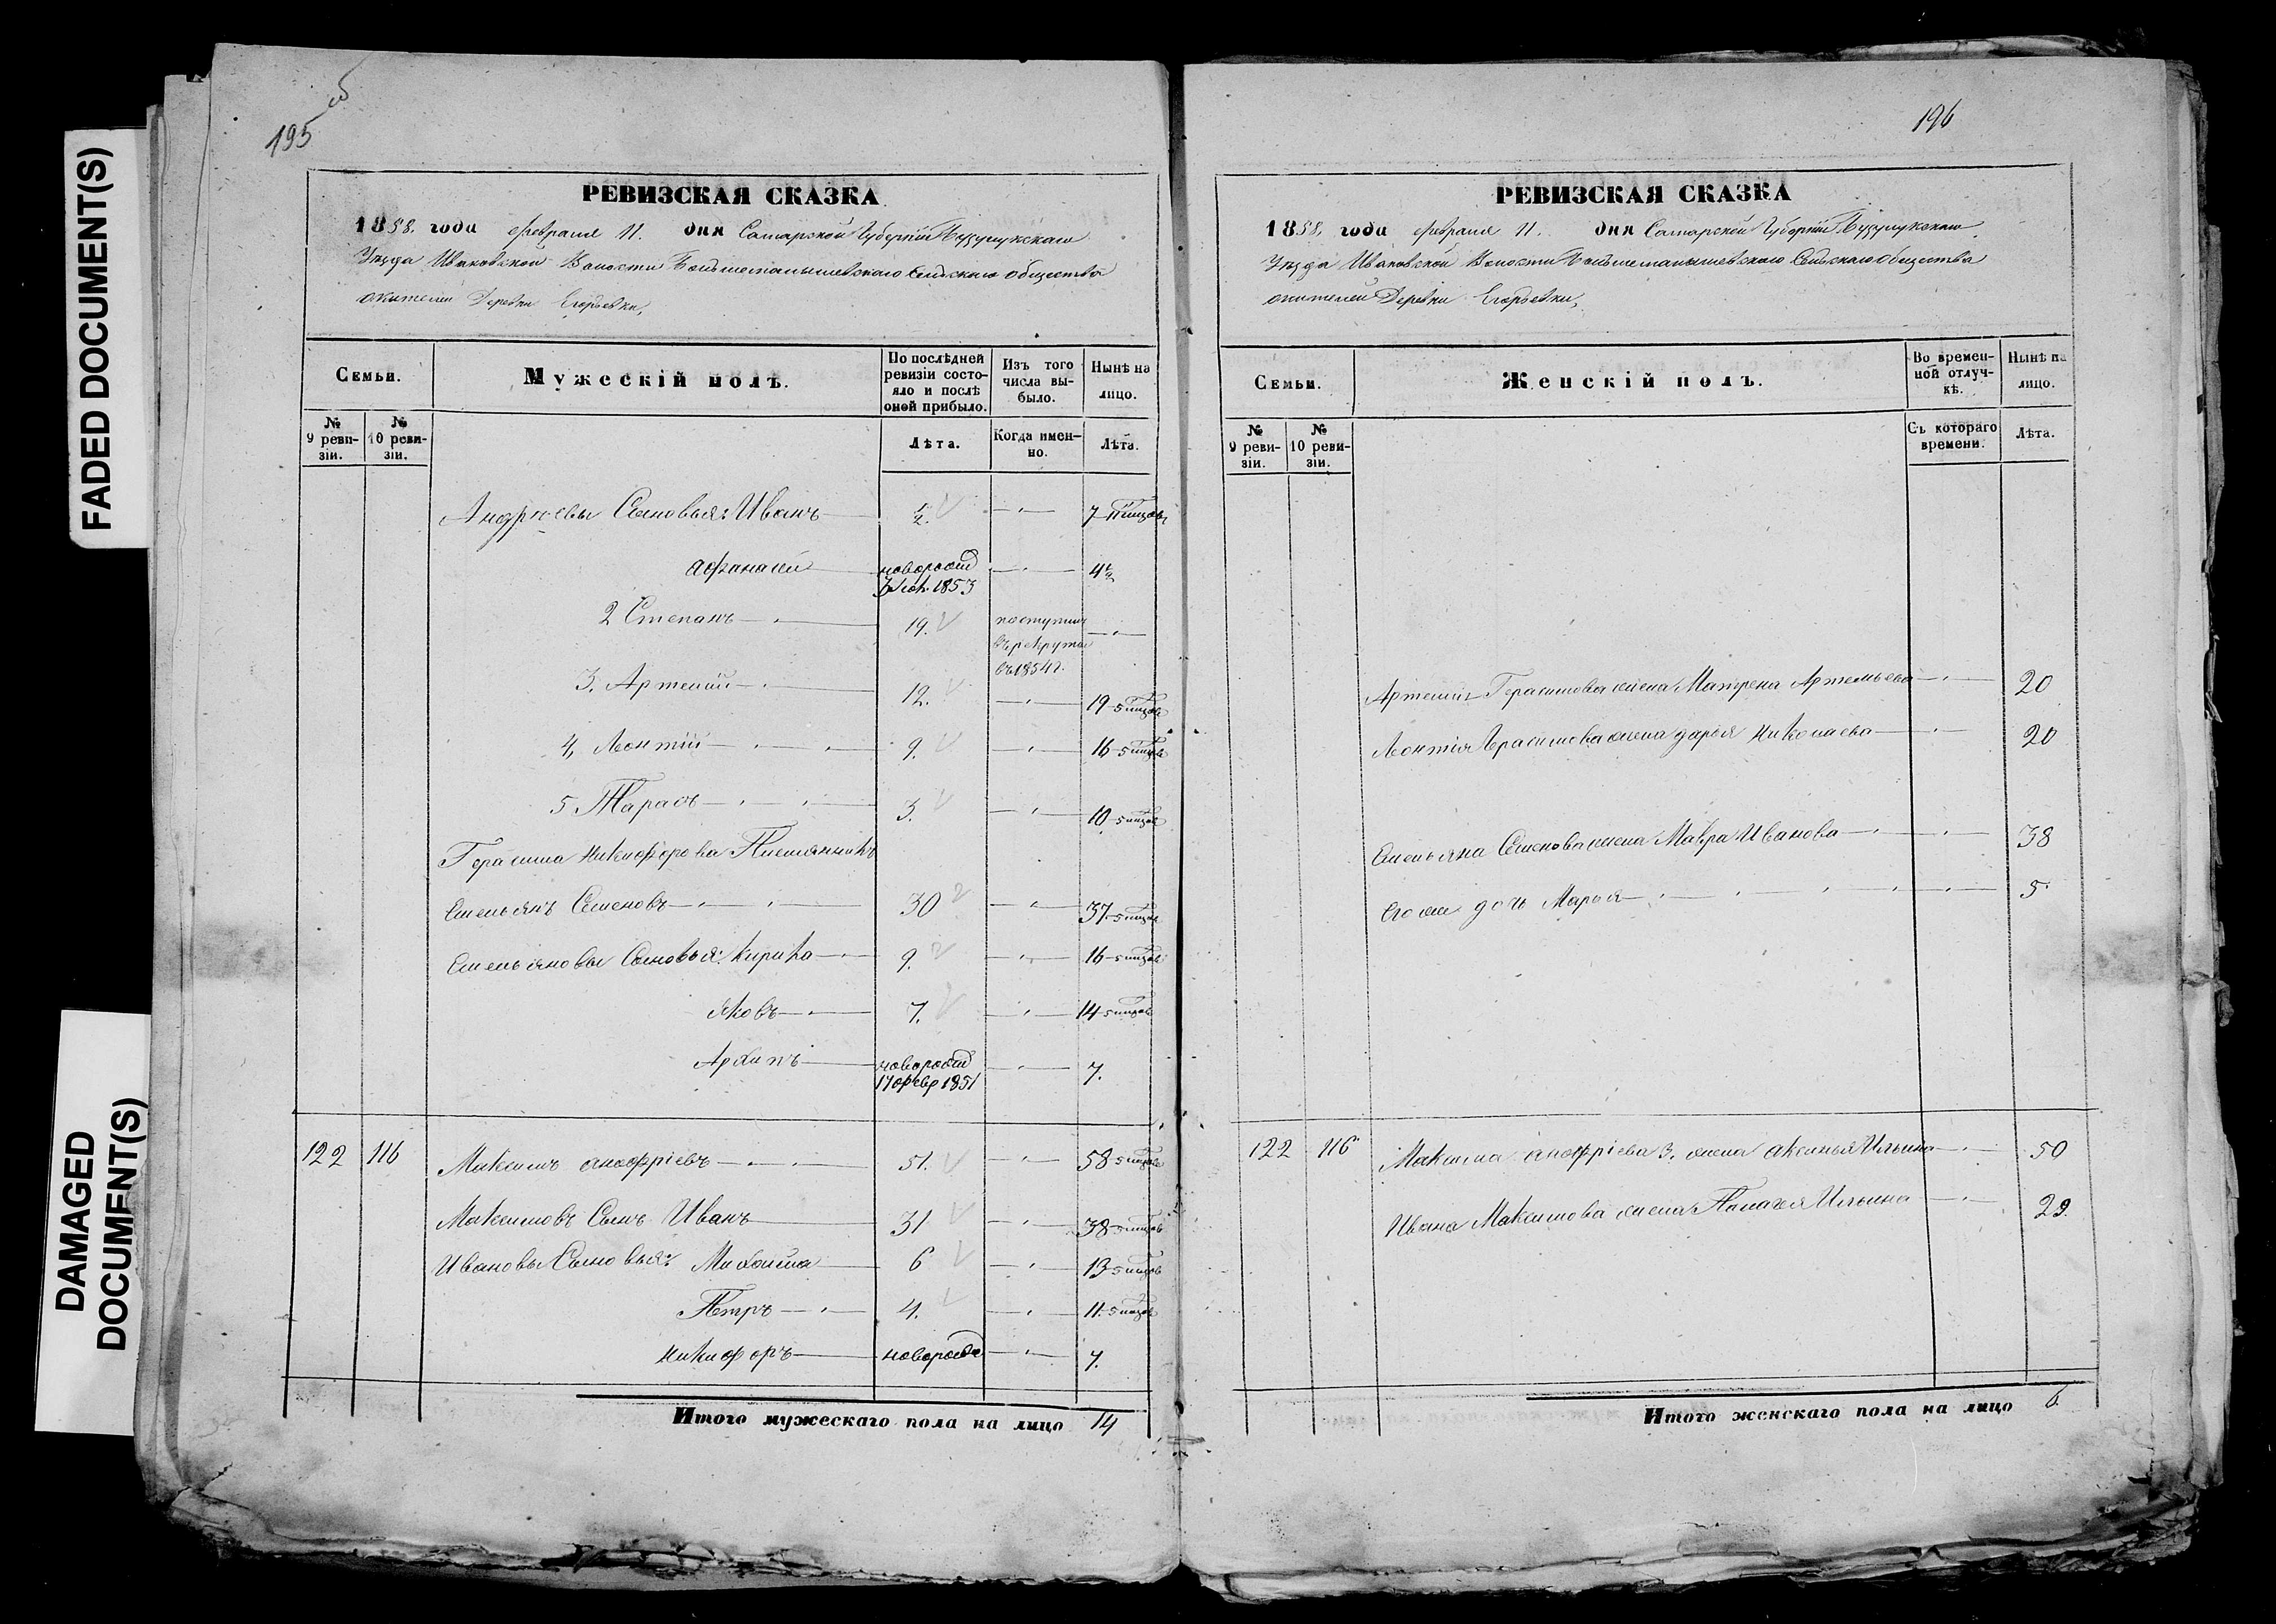 FADED DOCUMENT(S)
DAMAGED
DOCUMENT(S)
195
РЕВИЗСКАЯ СКАЗКА
1858. года февраля 11. дня Самарской Губерніи Бузулукскаго
Уезда Ивановской Волости Сельскаго общества
жителей Деревни Егорьевки,
Семьи.
Мужескій полъ.
По послѣдней
ревизіи состо-
яло и послѣ
оной прибыло.
Изъ того
числа вы-
было.
Нынѣ на
лицо.
№
9 реви-
зіи.
№
10 реви-
зіи.
Лѣта.
Когда имен-
но.
Лѣта.
Андреевы Сыновья: Иванъ 1/2. 7
Афанасій новорожд 1853 4 1/2
2 Степанъ 19. поступилъ
въ рекруты
въ 1854 г.
3. Артемій 12. 19
4, Леонтій 9. 16
5 Тарасъ 3. 10
Герасима Никифорова Племянникъ
Емельянъ Семеновъ 30 37
Емельяновы Сыновья: Кирила 9. 16
Яковъ 7. 14
Архипъ новорожд
17 февр 1851 7.
122 116 Максимъ Анофріевъ 51. 58
Максимовъ Сынъ Иванъ 31 38
Ивановы Сыновья: Михайла 6 13
Петръ 4. 11
Никифоръ новорожд 7.
Итого мужескаго пола на лицо 14
196
РЕВИЗСКАЯ СКАЗКА
1858. года февраля 11. дня Самарской Губерніи Бузулукскаго
Уезда Ивановской Волости Сельскаго Общества
жителей Деревни Егорьевки,
Семьи.
Женскій полъ.
Во времен-
ной отлуч-
кѣ.
Нынѣ на
лицо.
№
9 реви-
зіи.
№
10 реви-
зіи.
Съ котораго
времени.
Лѣта.
Артемія Герасимова жена Матрена Артемьева 20
Леонтія Герасимова жена Дарья Николаева 20
Емельяна Семенова жена Мавра Иванова 38
Его же дочь Марья 5
122 116 Максима Анофріева 3. жена Аксинья Ильина 50
Ивана Максимова жена Палагея Ильина 29.
Итого женскаго пола на лицо 6.